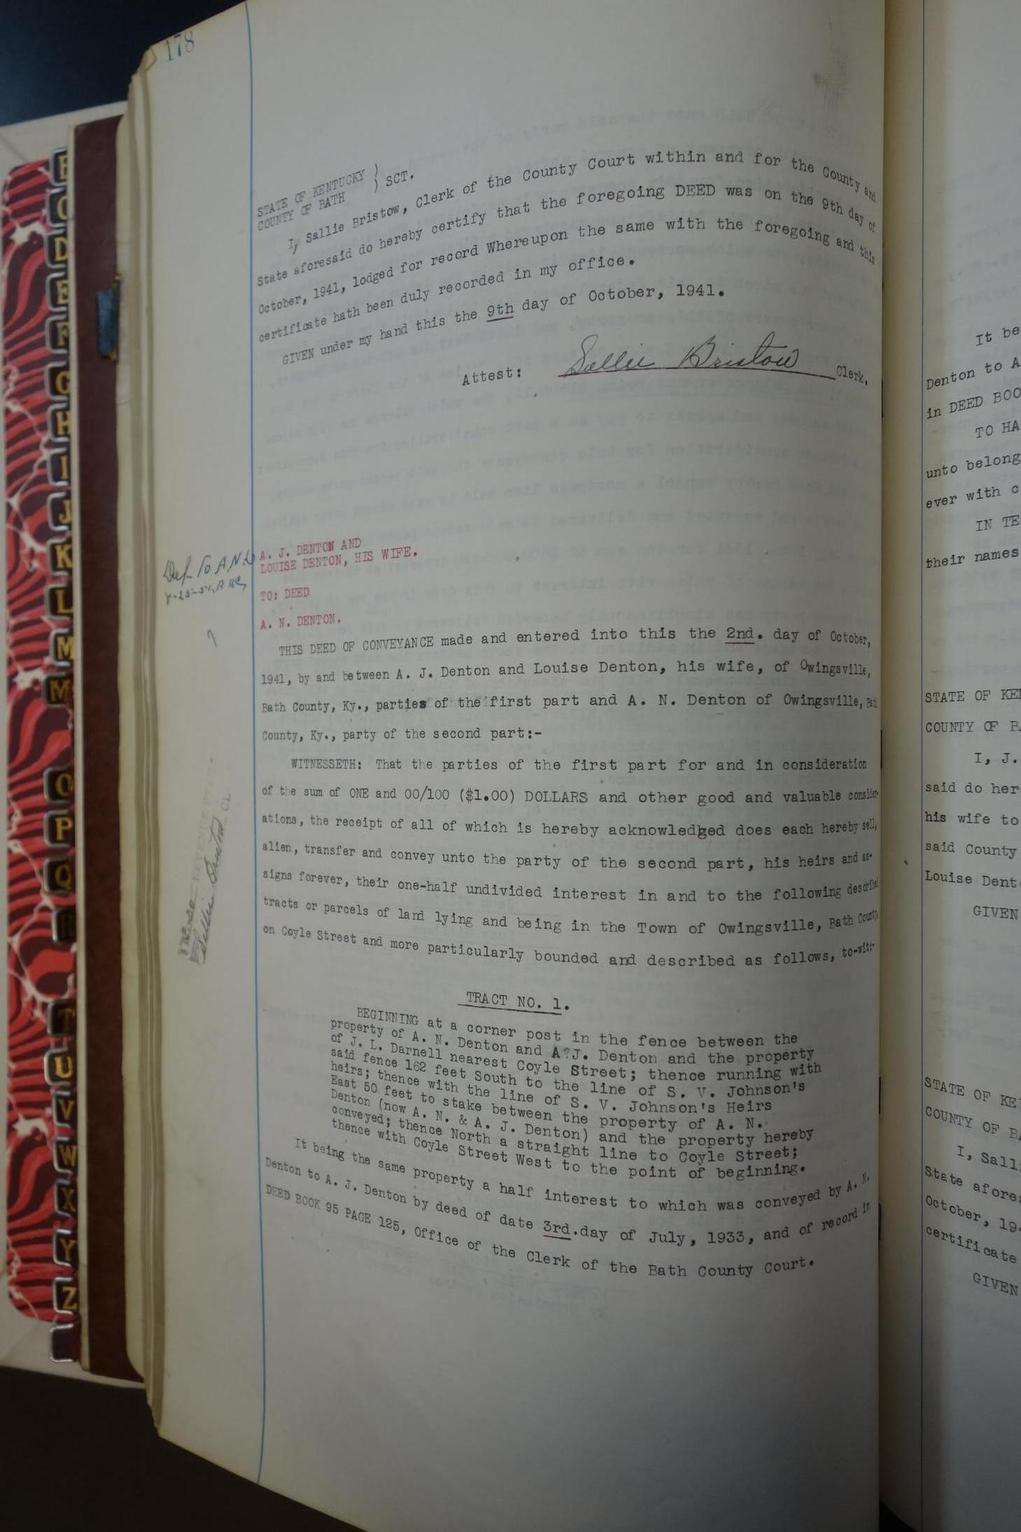 178
STATE OF KENTUCKY )
COUNTY OF BATH ) SCT.
I, Sallie Bristow, Clerk of the County Court within and for the County and
State aforesaid do hereby certify that the foregoing DEED was on the 9th day of
October, 1941, lodged for record Whereupon the same with the foregoing and this
certificate hath been duly recorded in my office.
GIVEN under my hand this the 9th day of October, 1941.
Attest: Sallie Bristow Clerk,
Del. To A N D
A. J. DENTON AND
LOUISE DENTON, HIS WIFE.
TO: DEED
A. N. DENTON.
THIS DEED OF CONVEYANCE made and entered into this the 2nd. day of October,
1941, by and between A. J. Denton and Louise Denton, his wife, of Owingsville,
Bath County, Ky., parties of the first part and A. N. Denton of Owingsville, Bath
County, Ky., party of the second part:-
WITNESSETH: That the parties of the first part for and in consideration
of the sum of ONE and 00/100 ($1.00) DOLLARS and other good and valuable consider-
ations, the receipt of all of which is hereby acknowledged does each hereby sell,
alien, transfer and convey unto the party of the second part, his heirs and as-
signs forever, their one-half undivided interest in and to the following described
tracts or parcels of land lying and being in the Town of Owingsville, Bath County,
on Coyle Street and more particularly bounded and described as follows, to-wit:-
TRACT NO. 1.
BEGINNING at a corner post in the fence between the
property of A. N. Denton and A. J. Denton and the property
of J. L. Darnell nearest Coyle Street; thence running with
said fence 162 feet South to the line of S. V. Johnson's
heirs; thence with the line of S. V. Johnson's Heirs
East 50 feet to stake between the property of A. N.
Denton (now A. N. & A. J. Denton) and the property hereby
conveyed; thence North a straight line to Coyle Street;
thence with Coyle Street West to the point of beginning.
It being the same property a half interest to which was conveyed by A. N.
Denton to A. J. Denton by deed of date 3rd.day of July, 1933, and of record in
DEED BOOK 95 PAGE 125, Office of the Clerk of the Bath County Court.
It be
Denton to A
in DEED BOO
TO HA
unto belong
ever with c
IN TE
their names
STATE OF KE
COUNTY OF B
I, J.
said do her
his wife to
said County
Louise Dent
GIVEN
STATE OF KE
COUNTY OF B
I, Sall
State afore
October, 19
certificate
GIVEN
B
C
D
E
F
G
H
I
J
K
L
M
M
O
P
Q
R
T
U
V
W
X
Y
Z